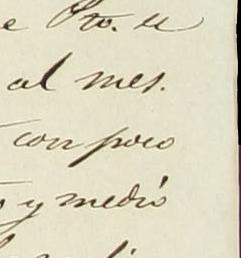 e Pto. u
al mes.
con poco
y medio